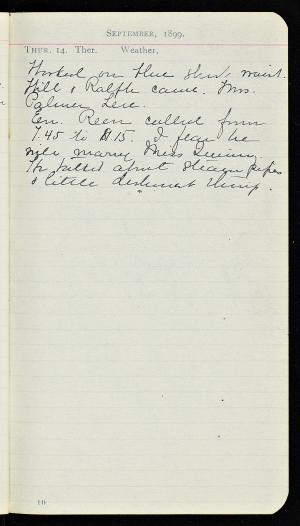 SEPTEMBER, 1899.
THUR. 14. Ther. Weather,
Worked on blue silk waist.
Will & Ralph came. Mrs.
Palmer
called from
7.45 to 8.15. I fear he
will marry Miss Quinn.
He talked about Steam pipes
& little dishonest things.
16